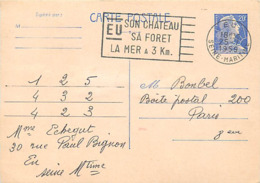 CARTE POSTALE
EU SON CHÂTEAU
SA FORET
LA MER A 3 Km.
EU
18
1956
SEINE-MARIT
20F
1 2 5
4 3 2
4 2 3
Mme Ecbegut
30 rue Paul Bignon
Eu
seine Mtime
M Bonbel
Boîte postal 200
Paris
8 eme